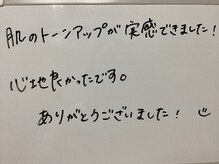 肌のトーンアップが実感できました！
心地良かったです。
ありがとうございました！